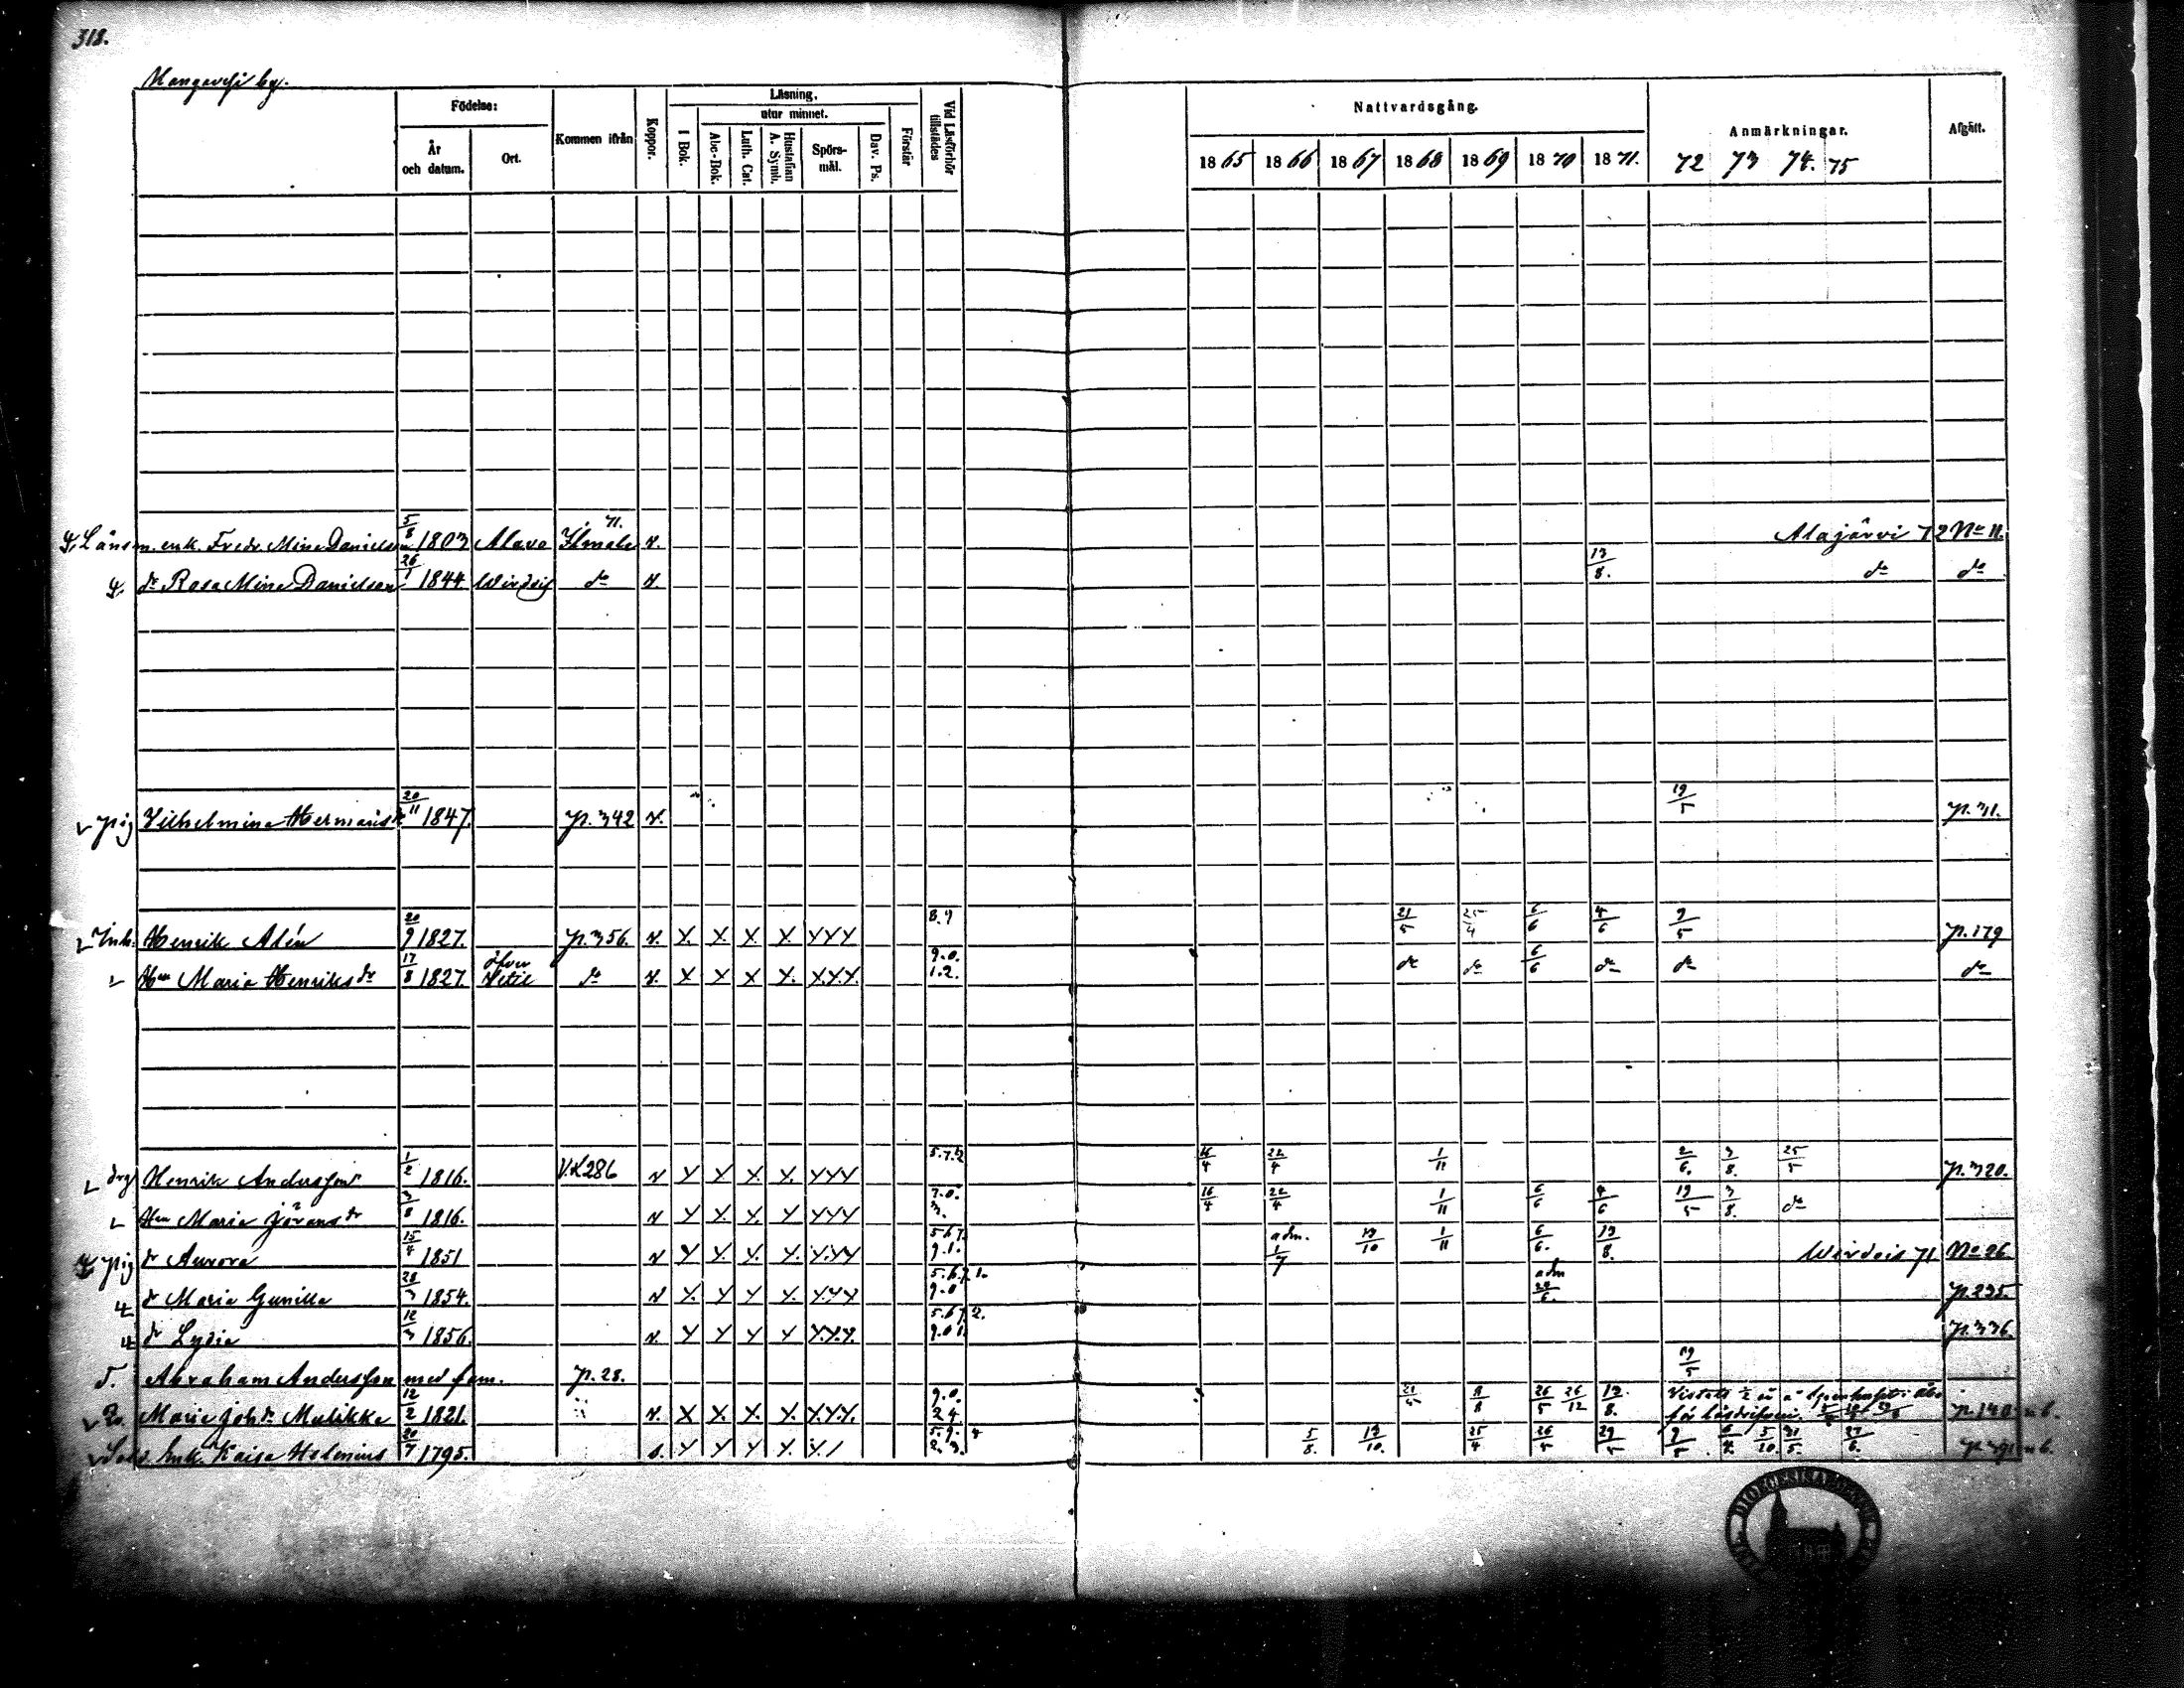 318.
by.
Födelse: År och datum. Ort. Kommen ifrån Koppor. Läsning. I Bok. utur minnet. Abc-Bok. Luth. Cat. Hustaflan A. Symb. Spörsmål. Dav. Ps. Förstår Vid Läsförhör tillstädes Nattvardsgång. 1865 1866 1867 1868 1869 1870 1871. Anmärkningar. 72 73 74. 75 Afgått.
enk. Fredr. Mina Danielson 5/8 1803 Alavo Ilmola 71. v. Alajärvi 72 No 11.
dr Rosa Mina Danielson 26/1 1844 Wirdois do v 13/8. do do
pig Vilhelmina Hermansdr 20/11 1847. p. 342 v. 19/5 p. 31.
Inh. Henrik Alén 20/9 1827. p. 356. v. X. X. X X. XXX 8.9 21/5 25/4 6/6 4/6 9/5 p. 179
Hu Maria Henriksdr 17/8 1827. öfver Vetil do v. X X X X. X.X.X. 9.0. 1.2. do do 6/6 do do do
Henrik Andersson 1/2 1816. V.K 286 v X X. X. X. XXX 5.7.2 16/4 22/4 1/11 2/6. 3/8. 25/5 p. 320.
Hu Maria Jöransdr 3/8 1816. v X X. X. X XXX 7.0. 3. 16/4 22/4 1/11 6/6 4/6 19/5 3/8. do
pig dr Aurora 15/4 1851 v X X. X. X. X.XX 5.6.7. 9.1. adm. 1/7 13/10 1/11 6/6. 13/8. Wirdois 71 No 26.
dr Maria Gunilla 28/3 1854. v X. X X X. X.XX 5.6.7.1. 9.0 adm p. 235.
dr Lydia 12/3 1856. v. X X X X X.X.X. 5.6.7.2. 9.0.1. p. 336.
Abraham Andersson med fam. p. 28. 19/5
Maria Johdr Mulikka 12/2 1821. v. X X. X. X. X.X.X. 9.0. 2.4 21/5 8/8 26/5 26/12 13/8. p. 140
Enk. Kaisa Holmius 20/7 1795. s. X X X X. X.1 5/8. 13/10. 25/4 26/5 29/5 9/5